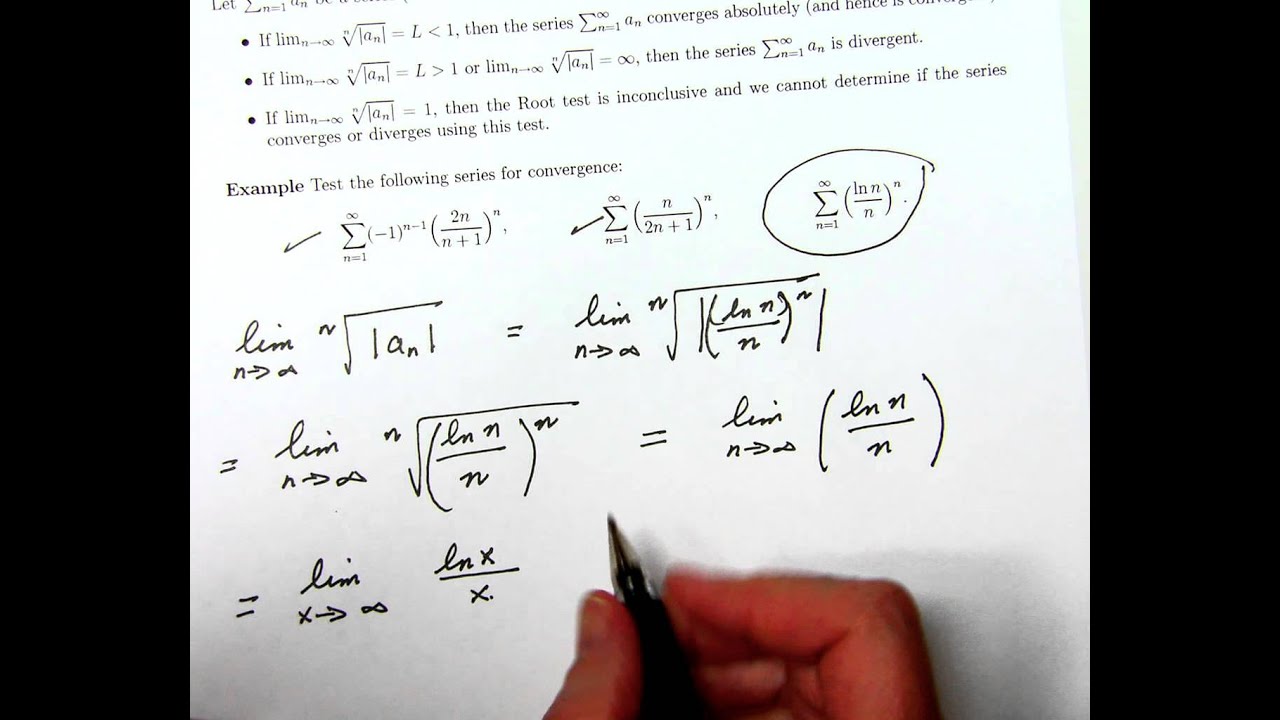 Let ∑ₙ₌₁ aₙ be a series
• If limₙ→∞ ⁿ√|aₙ| = L < 1, then the series ∑ₙ₌₁^∞ aₙ converges absolutely (and hence is
• If limₙ→∞ ⁿ√|aₙ| = L > 1 or limₙ→∞ ⁿ√|aₙ| = ∞, then the series ∑ₙ₌₁^∞ aₙ is divergent.
• If limₙ→∞ ⁿ√|aₙ| = 1, then the Root test is inconclusive and we cannot determine if the series
converges or diverges using this test.
Example Test the following series for convergence:
✓ ∑ₙ₌₁^∞ (-1)ⁿ⁻¹ (2n/(n+1))ⁿ, ✓ ∑ₙ₌₁^∞ (n/(2n+1))ⁿ, ∑ₙ₌₁^∞ (ln n/n)ⁿ.
lim n→∞ ⁿ√|aₙ| = lim n→∞ ⁿ√|(ln n/n)ⁿ|
= lim n→∞ ⁿ√(ln n/n)ⁿ = lim n→∞ (ln n/n)
= lim x→∞ ln x/x.